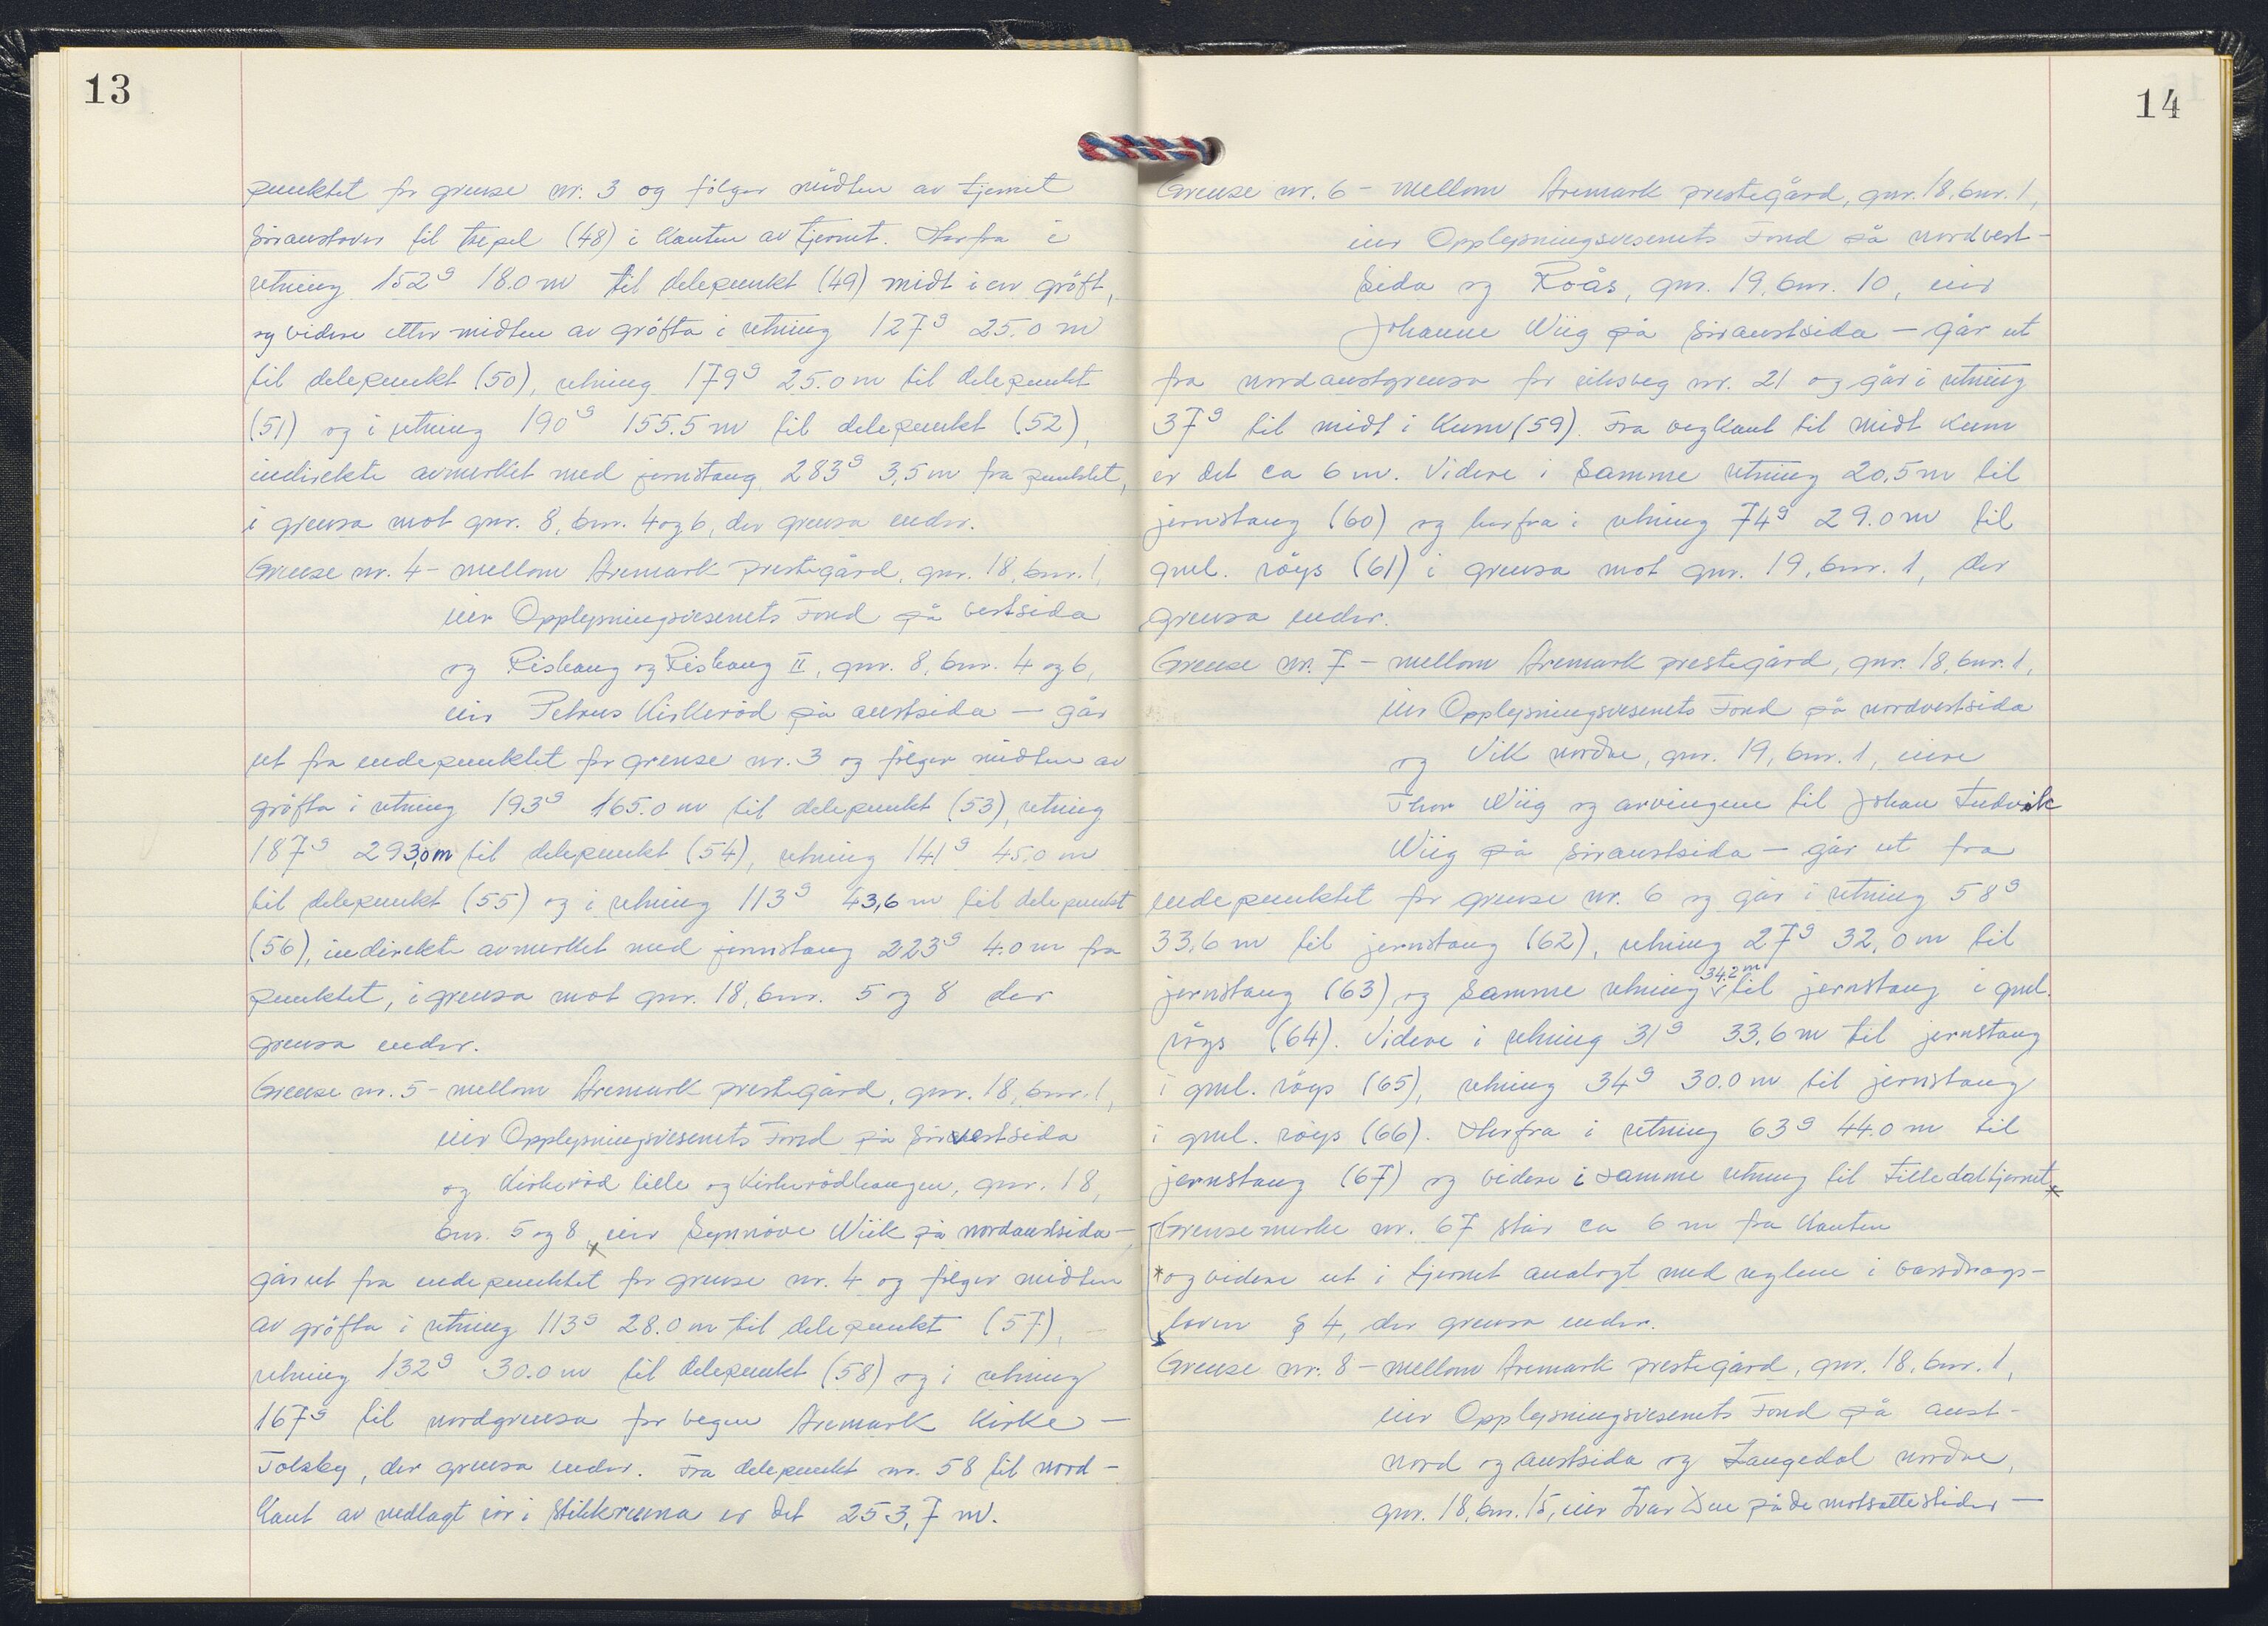 13
punktet for grense nr. 3 og følger midten av tjernet
søraustover til trepel (48) i kanten av tjernet. Herfra i
retning 152g 18.0 m til delepunkt (49) midt i en grøft,
og videre etter midten av grøfta i retning 127g 25.0 m
til delepunkt (50), retning 179g 25.0 m til delepunkt
(51) og i retning 190g 155.5 m til delepunkt (52),
indirekte avmerket med jernstang 283g 3,5 m fra punktet,
i grensa mot gnr. 8, bnr. 4 og 6, der grensa ender.
Grense nr. 4 - mellom Aremark prestegård, gnr. 18, bnr. 1,
eier Opplysningsvesenets Fond på vestsida
og Rishaug og Rishaug II, gnr. 8, bnr. 4 og 6,
eier Petrus Kirkerød på austsida — går
ut fra endepunktet for grense nr. 3 og følger midten av
grøfta i retning 193g 165.0 m til delepunkt (53), retning
187g 293,0 m til delepunkt (54), retning 141g 45,0 m
til delepunkt (55) og i retning 113g 43,6 m til delepunkt
(56), indirekte avmerket med jernstang 223g 4.0 m fra
punktet, i grensa mot gnr. 18, bnr. 5 og 8 der
grensa ender.
Grense nr. 5 - mellom Aremark prestegård, gnr. 18, bnr. 1,
eier Opplysningsvesenets Fond på sørvestsida
og Kirkerød lille og Kirkerødhaugen, gnr. 18,
bnr. 5 og 8, eier Synnöve Wiik på nordaustsida —
går ut fra endepunktet for grense nr. 4 og følger midten
av grøfta i retning 113g 28.0 m til delepunkt (57),
retning 132g 30.0 m til delepunkt (58) og i retning
167g til nordgrensa for vegen Aremark Kirke —
Tolsby, der grensa ender. Fra delepunkt nr. 58 til nord-
kant av nedlagt rør i stikkrenna er det 253,7 m.
14
Grense nr. 6 - mellom Aremark prestegård, gnr. 18, bnr. 1,
eier Opplysningsvesenets Fond på nordvest-
sida og Roås, gnr. 19, bnr. 10, eier
Johanne Wiig på søraustsida — går ut
fra nordaustgrensa for riksveg nr. 21 og går i retning
37g til midt i kum (59). Fra vegkant til midt kum
er det ca 6 m. Videre i samme retning 20,5 m til
jernstang (60) og herfra i retning 74g 29.0 m til
gml. røys (61) i grensa mot gnr. 19, bnr. 1, der
grensa ender.
Grense nr. 7 - mellom Aremark prestegård, gnr. 18, bnr. 1,
eier Opplysningsvesenets Fond på nordvestsida
og Vik nordre, gnr. 19, bnr. 1, eiere
Thor Wiig og arvingene til Johan Ludvik
Wiig på søraustsida — går ut fra
endepunktet for grense nr. 6 og går i retning 58g
33,6 m til jernstang (62), retning 27g 32,0 m til
jernstang (63) og samme retning 34.2 m til jernstang i gml.
røys (64). Videre i retning 31g 33,6 m til jernstang
i gml. røys (65), retning 34g 30.0 m til jernstang
i gml. røys (66). Herfra i retning 63g 44.0 m til
jernstang (67) og videre i samme retning til Lilledaltjernet *
Grensemerke nr. 67 står ca 6 m fra kanten
* og videre ut i tjernet analogt med reglene i vassdrags-
loven § 4, der grensa ender.
Grense nr. 8 - mellom Aremark prestegård, gnr. 18, bnr. 1,
eier Opplysningsvesenets Fond på aust-
nord og austsida og Langedal nordre,
gnr. 18, bnr. 15, eier Ivar Due på de motsatte sider —